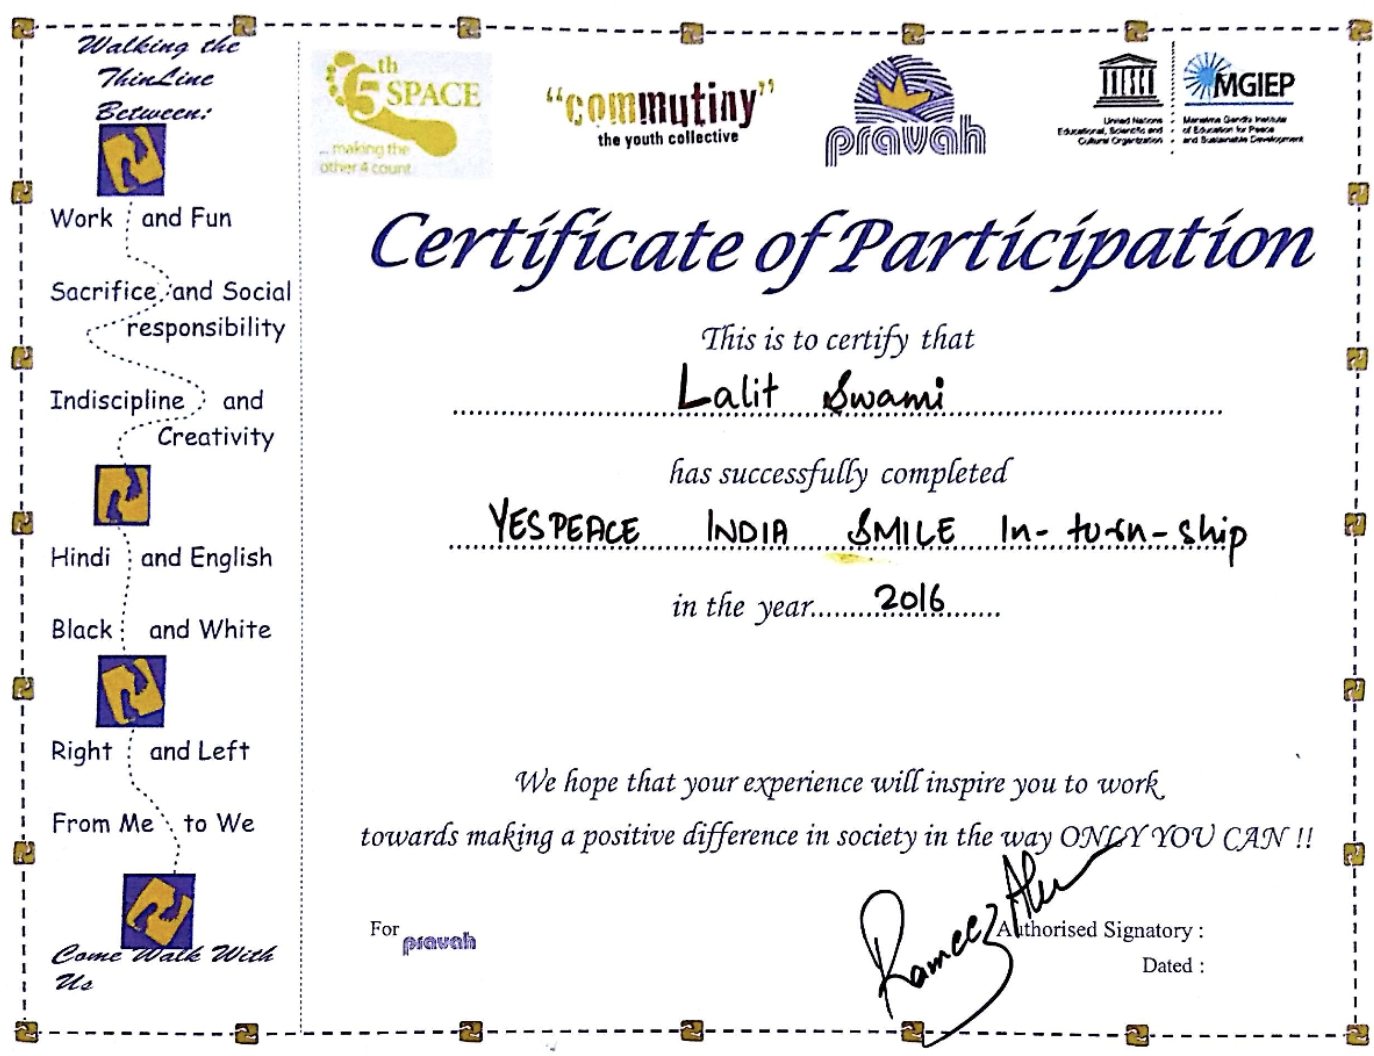 Walking the
ThinLine
Between:
Work and Fun
Sacrifice and Social
responsibility
Indiscipline and
Creativity
Hindi and English
Black and White
Right and Left
From Me to We
Come Walk With
Us
5th SPACE
... making the
other 4 count
"commutiny"
the youth collective
pravah
United Nations
Educational, Scientific and
Cultural Organization
MGIEP
Mahatma Gandhi Institute
of Education for Peace
and Sustainable Development
Certificate of Participation
This is to certify that
Lalit Swami
has successfully completed
YESPEACE INDIA SMILE In-turn-ship
in the year 2016
We hope that your experience will inspire you to work
towards making a positive difference in society in the way ONLY YOU CAN !!
For pravah
Rameez
Authorised Signatory :
Dated :